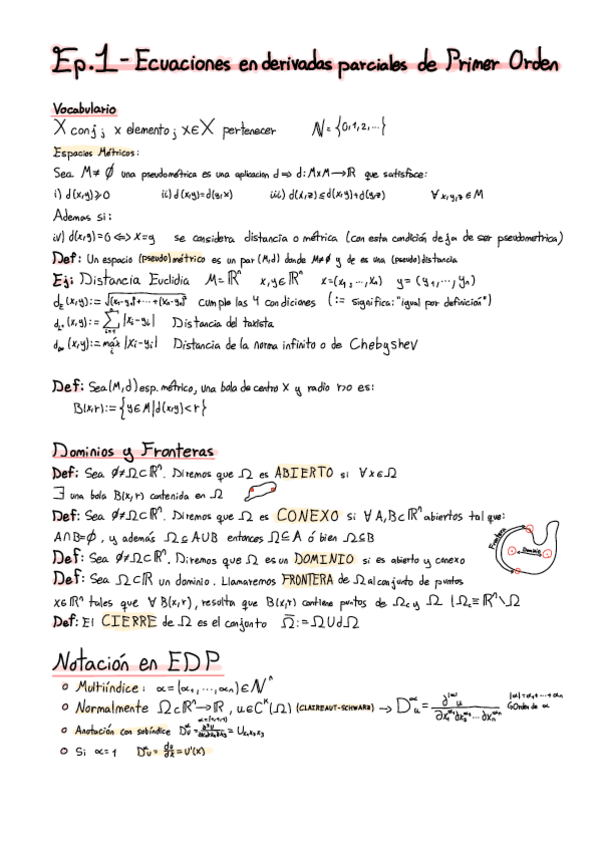 Ep.1 - Ecuaciones en derivadas parciales de Primer Orden
Vocabulario
X conj ; x elemento ; x∈X pertenecer N={0,1,2,...}
Espacios Métricos:
Sea M≠∅ una pseudométrica es una aplicacion d => d: MxM→R que satisface:
i) d(x,y)≥0 ii) d(x,y)=d(y,x) iii) d(x,z)≤d(x,y)+d(y,z) ∀x,y,z∈M
Ademas si:
iv) d(x,y)=0 <=> x=y se considera distancia o métrica (con esta condición deja de ser pseudometrica)
Def: Un espacio (pseudo)métrico es un par (M,d) donde M≠∅ y d es una (pseudo)distancia
Ej: Distancia Euclidia M=Rⁿ x,y∈Rⁿ x=(x₁,...,xₙ) y=(y₁,...,yₙ)
d_E(x,y):=√(x₁-y₁)²+...+(xₙ-yₙ)² cumple las 4 condiciones (:= significa: "igual por definición")
d₁(x,y):=∑ⁿᵢ₌₁|xᵢ-yᵢ| Distancia del taxista
d∞(x,y):=máxᵢ|xᵢ-yᵢ| Distancia de la norma infinito o de Chebyshev
Def: Sea (M,d) esp. métrico, una bola de centro x y radio r>0 es:
B(x,r):={y∈M|d(x,y)<r}
Dominios y Fronteras
Def: Sea ∅≠Ω⊂Rⁿ. Diremos que Ω es ABIERTO si ∀x∈Ω
∃ una bola B(x,r) contenida en Ω
Def: Sea ∅≠Ω⊂Rⁿ. Diremos que Ω es CONEXO si ∀A,B⊂Rⁿ abiertos tal que:
A∩B=∅, y además Ω⊆A∪B entonces Ω⊆A ó bien Ω⊆B
Frontera
Dominio
Def: Sea ∅≠Ω⊂Rⁿ. Diremos que Ω es un DOMINIO si es abierto y conexo
Def: Sea Ω⊂R un dominio. Llamaremos FRONTERA de Ω al conjunto de puntos
x∈Rⁿ tales que ∀B(x,r), resulta que B(x,r) contiene puntos de Ωc y Ω |Ωc≡Rⁿ\Ω
Def: El CIERRE de Ω es el conjunto Ω̄:=Ω∪dΩ
Notación en EDP
o Multiíndice: α=(α₁,...,αₙ)∈Nⁿ
o Normalmente Ω⊂Rⁿ→R, u∈Cᵏ(Ω) (CLAIREAUT-SCHWARB) → Dᵅu=∂^|α|u/∂x₁^α₁∂x₂^α₂...∂xₙ^αₙ |α|=α₁+...+αₙ
Orden de α
o Anotación con subíndice
o Si α=1 Dᵅu=du/dx=u'(x)